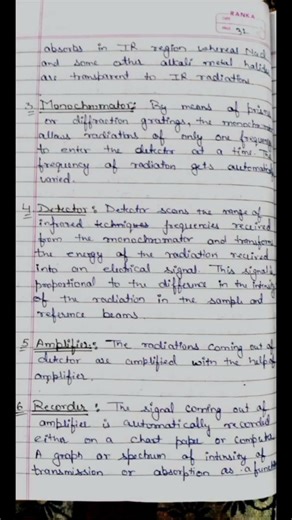 RANKA
32
absorbs in IR region whereas NaCl
and some other alkali metal halides
are transparent to IR radiations.
3. Monochromator: By means of prisms
or diffraction gratings, the monochro
allows radiations of only one frequency
to enter the detector at a time. The
frequency of radiation gets automatic
varied.
4. Detector: Detector scans the range of
infrared techniques frequencies received
from the monochromator and transforms
the energy of the radiation recived
into an electrical signal. This signal is
proportional to the difference in the intensity
of the radiation in the sample and
reference beams.
5. Amplifier: The radiations coming out of
detector are amplified with the help of
amplifier.
6. Recorder: The signal coming out of
amplifier is automatically recorded
either on a chart paper or computer.
A graph or spectrum of intensity of
transmission or absorption as a function